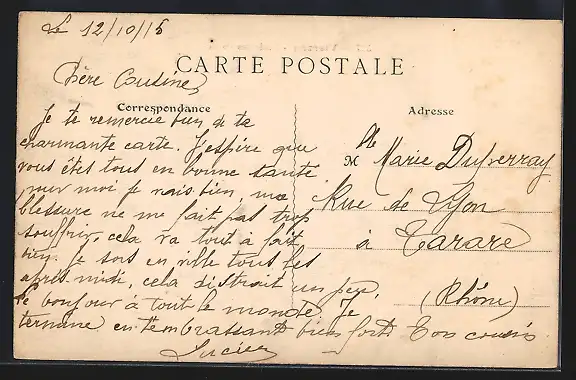 Le 12/10/15
CARTE POSTALE
Chère Cousine,
Correspondance
Je te remercie bien de ta
charmante carte. J'espère que
vous êtes tous en bonne santé
pour moi je vais bien, ma
blessure ne me fait pas trop
souffrir, cela va tout à fait
bien. Je sors en ville tous les
après-midi, cela distrait un peu.
le bonjour à tout le monde. Je
termine en t'embrassant bien fort. Ton cousin
Lucien
Adresse
M lle Marie
Rue de Lyon
à Tarare
(Rhône)